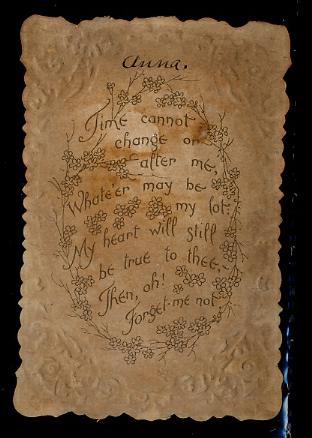 Anna.
Time cannot
change or
after me,
Whate'er may be
my lot.
My heart will still
be true to thee,
Then, oh!
Forget-me not